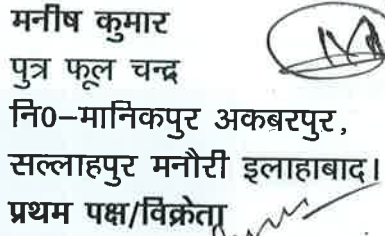 मनीष कुमार
पुत्र फूल चन्द्र
नि0-मानिकपुर अकबरपुर,
सल्लाहपुर मनौरी इलाहाबाद।
प्रथम पक्ष/विक्रेता